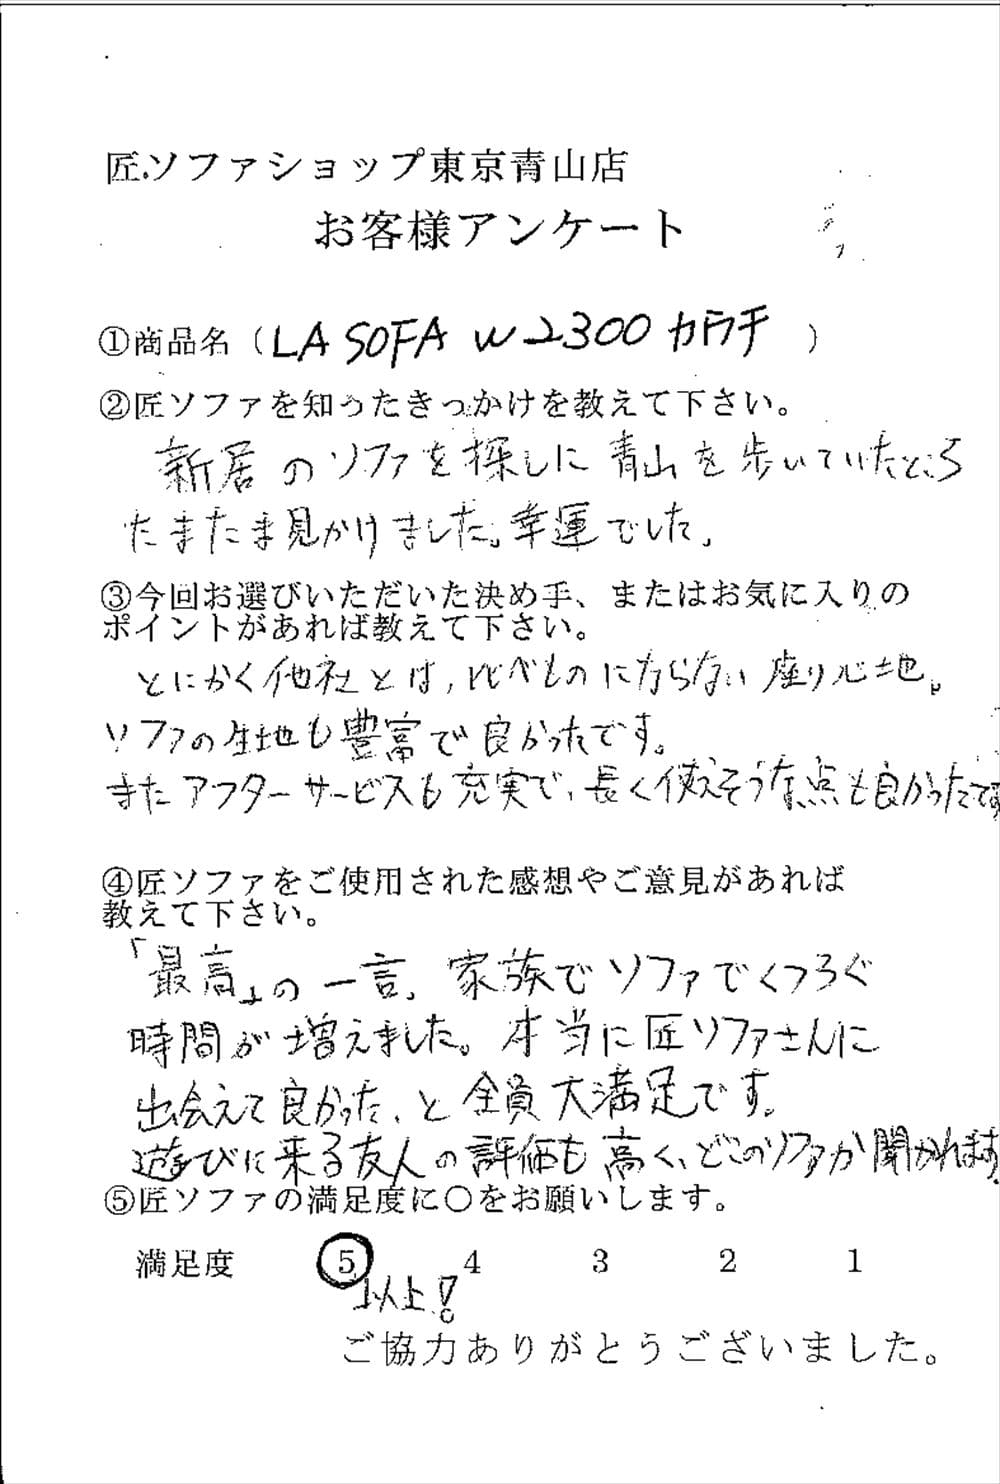 匠ソファショップ東京青山店
お客様アンケート
①商品名（LA SOFA W2300 カウチ）
②匠ソファを知ったきっかけを教えて下さい。
新居のソファを探しに青山を歩いていたところ
たまたま見かけました。幸運でした。
③今回お選びいただいた決め手、またはお気に入りの
ポイントがあれば教えて下さい。
とにかく他社とは、比べものにならない座り心地。
ソファの生地も豊富で良かったです。
またアフターサービスも充実で、長く使えそうな点も良かったです
④匠ソファをご使用された感想やご意見があれば
教えて下さい。
「最高」の一言。家族でソファでくつろぐ
時間が増えました。本当に匠ソファさんに
出会えて良かった、と全員大満足です。
遊びに来る友人の評価も高く、どこのソファか聞かれます。
⑤匠ソファの満足度に〇をお願いします。
満足度 5 4 3 2 1
以上!
ご協力ありがとうございました。